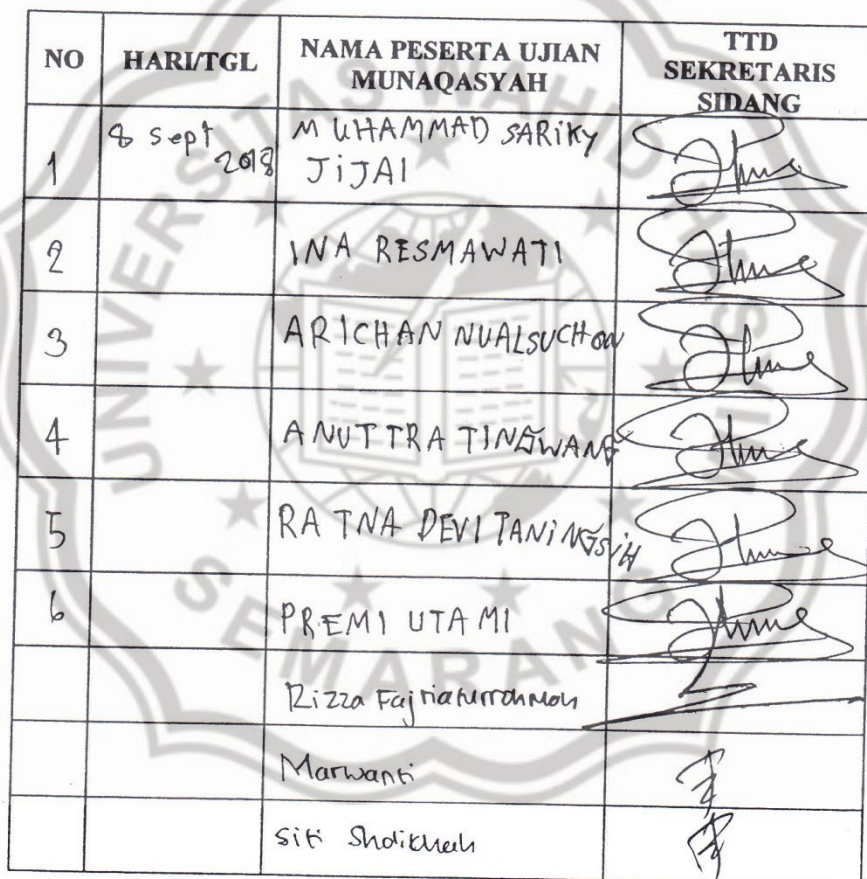 NO HARI/TGL NAMA PESERTA UJIAN MUNAQASYAH TTD SEKRETARIS SIDANG
1 8 Sept 2018 MUHAMMAD SARIKY JIJAI
2 INA RESMAWATI
3 ARICHAN NUALSUCHON
4 ANUTTRA TINGWANG
5 RATNA DEVI TANINGSIH
6 PREMI UTAMI
Rizza Fajriaturrohmah
Marwanti
Siti Sholikhah
UNIVERSITAS WAHID HASYIM
SEMARANG